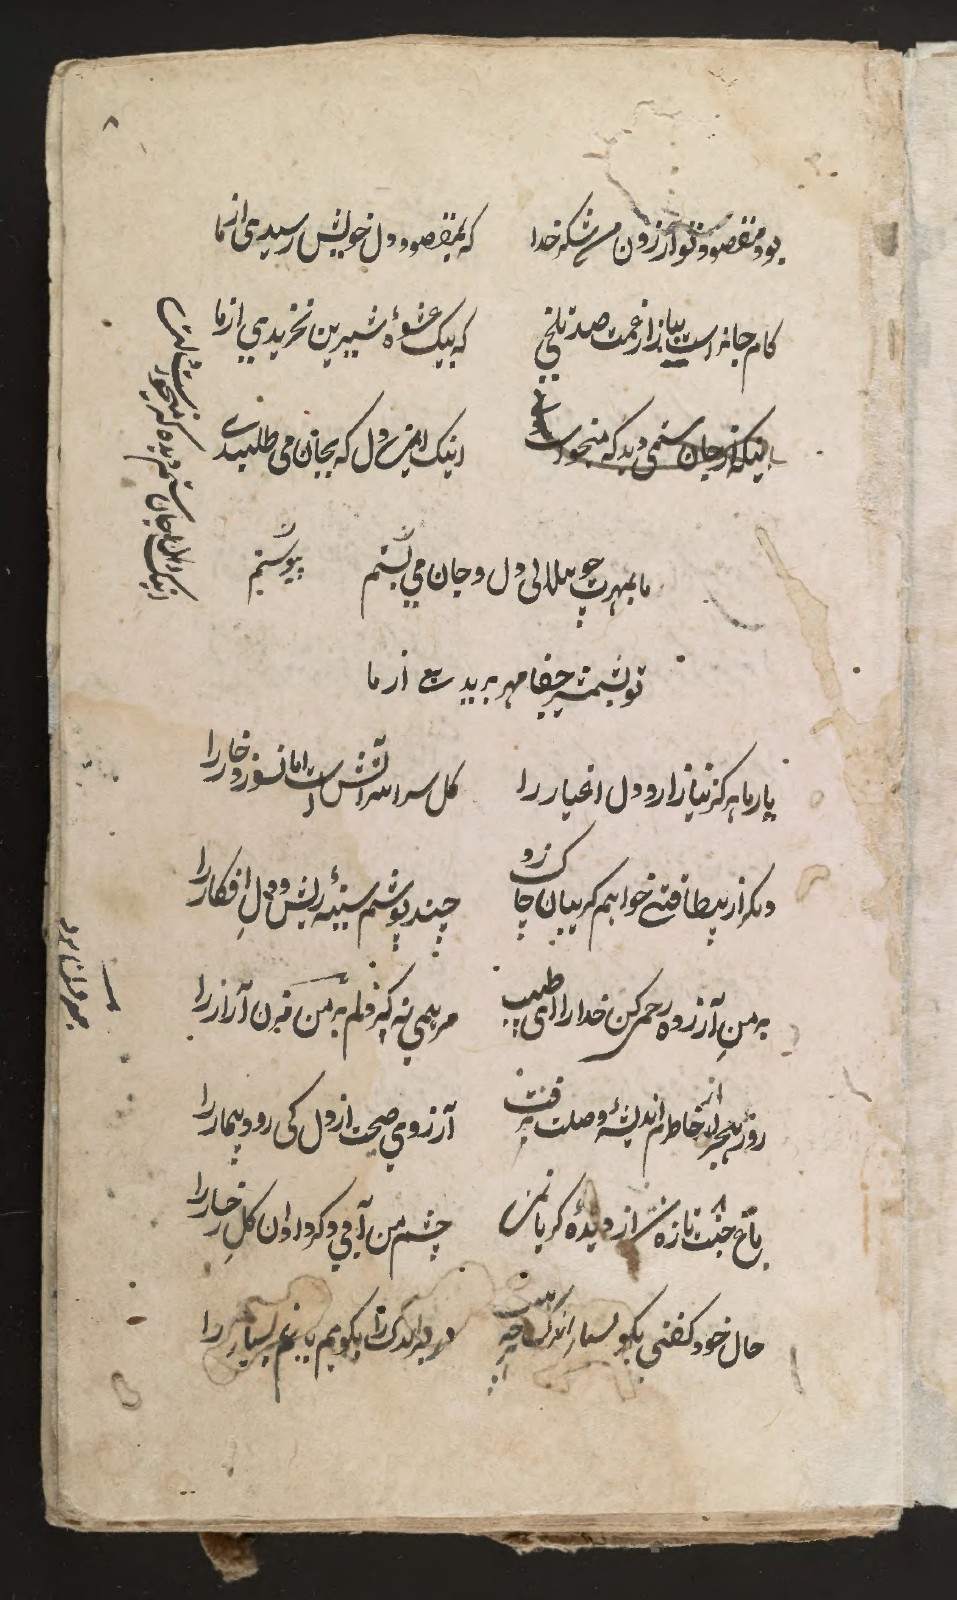 ۸
بود مقصود تو آزردن من شکر خدا که بمقصود دل خویش رسیدی از ما
کام جانهاست بیا زار غمت صد تلخی که بیک عشوهٔ شیرین نخریدی از ما
اینکه از جان ستمی دید که اینک این دل که بجان می طلبیدی
ما بمهرت چو هلالی دل و جان می بستیم پیوستیم
تو بشمشیر جفا مهر بریدی از ما
یار ما هرگز نیازارد دل اغیار را گل سراسر آتش است اما نسوزد خار را
دیگر از بیطاقتی خواهم گریبان چاک زد چند پوشم سینهٔ ریش و دل افکار را
بر من آزرده رحمی کن خدا را ای طبیب مرهمی نه کز دلم بیرون آزار را
روز هجر از خاطرم اندیشهٔ وصلت نرفت آرزوی صحت از دل کی رود بیمار را
باغ جنت تازه از دیدهٔ گریان من چشم من آب دادن گل رخسار را
حال خود گفتی بگو بسیار اندک هر چه هست اندک را بگویم یا غم بسیار را